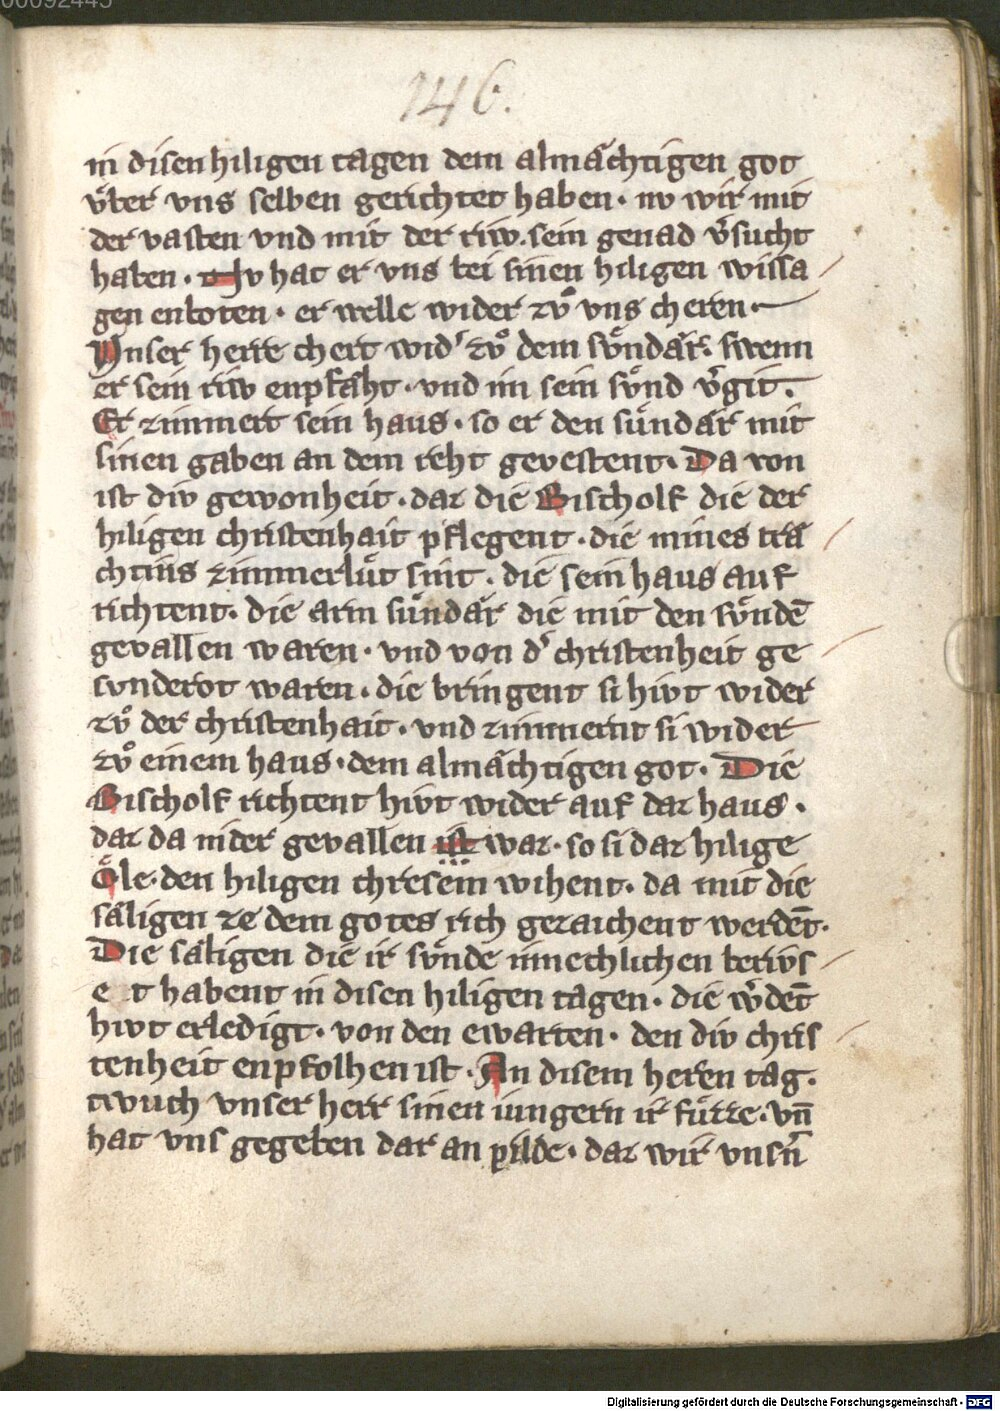 00092445
146.
in disen hiligen tagen dem almæ̂chtigen got
vͤber vns selben gerichtet haben · nv wir mit
der vasten vnd mit der riw . sein genad v̾sucht
haben · Nv hat er vns bei sinen hiligen wissa
gen enboten · er welle wider zvͦ vns cheren ·
Unser herre chert wid̾ zvͦ dem svͤndaͤr . swenn
er sein riw enpfaͤht · vnd im sein svͤnd v̾git .
Er zimmert sein haus · so er den suͤndaͤr mit
sinen gaben an dem reht gevestent . Da von
ist div gewonheit · daz die Bischolf die der
hiligen christenhait pflegent · die mines traͤ
chtins zimmerluͤt sint . die sein haus auf
richtent . die arm suͤndaͤr die mit den svͤndē
gevallen waren · vnd von d̾ christenheit ge
svnderot waren . die bringent si hivt wider
zvͦ der christenhait . vnd zimmernt si wider
zvͦ einem haus · dem almaͤchtigen got . Die
Bischolf richtent hivt wider auf daz haus .
daz da nider gevallen ist waz · so si daz hilige
Oͤle · den hiligen chresem wihent . da mit die
saͤligen ze dem gotes rich gezaichent werdēt .
Die saͤligen die ir svͤnde innechlichen berivs
e t habent in disen hiligen tagen . die w̾dēt
hivt erledigt . von den ewarten . den div chris
tenheit enpfolhen ist . An disem heren tag .
twuch vnser herr sinen iungern ir fuͤzze · vn̄
hat vns gegeben dar an pilde · daz wir vnsn̾
Digitalisierung gefördert durch die Deutsche Forschungsgemeinschaft - DFG